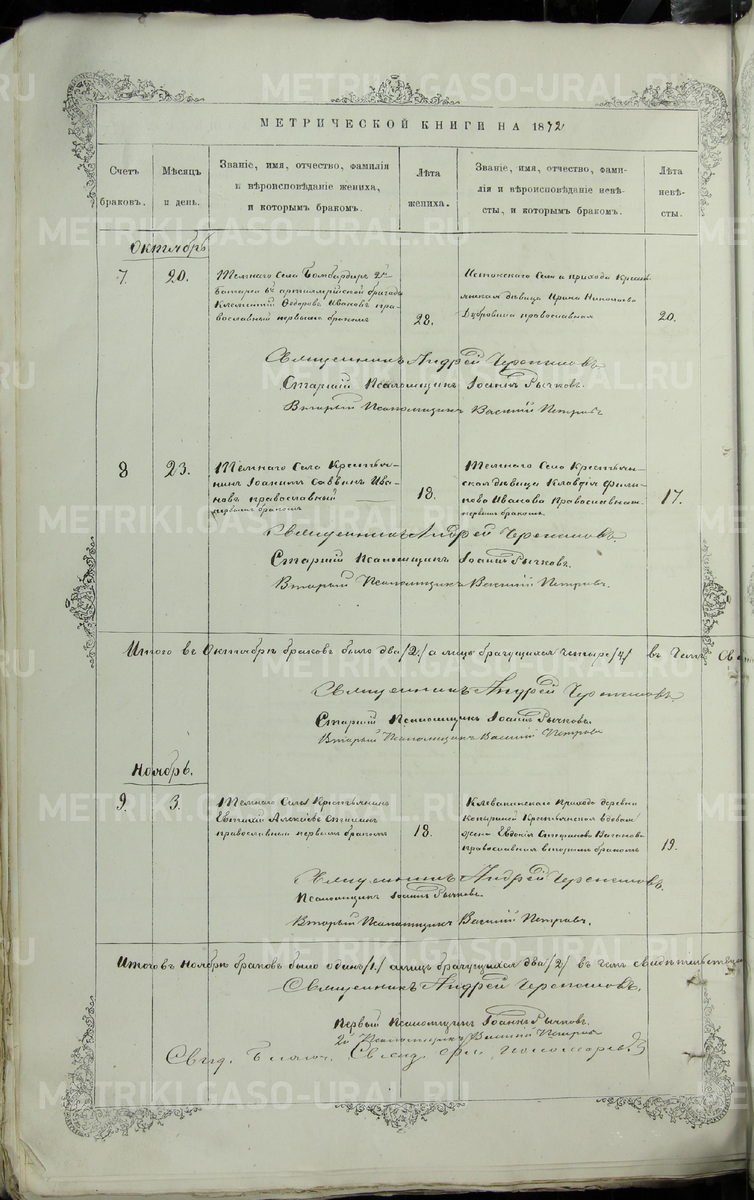 МЕТРИЧЕСКОЙ КНИГИ НА 1872
Счетъ браковъ.
Мѣсяцъ и день.
Званіе, имя, отчество, фамилія
и вѣроисповѣданіе жениха,
и которымъ бракомъ.
Лѣта жениха.
Званіе, имя, отчество, фами-
лія и вѣроисповѣданіе невѣ-
сты, и которымъ бракомъ.
Лѣта невѣ-
сты.
Октябрь
7
20.
Темнаго Села Бомбардиръ 2й
батареи артиллерійской бригады
Климентій Ѳедоровъ Ивановъ пра-
вославный первымъ бракомъ
28.
Истокскаго Села и прихода Крестья
янская дѣвица Ирина Николаева
Дубровина православная
20.
Священникъ Андрей Черепановъ.
Старшій Псаломщикъ Іоаннъ Рычковъ.
Вторый Псаломщикъ Василій Петровъ
8
23.
Темнаго Села Крестья-
нинъ Іоаннъ Саввинъ Ива-
новъ православный
первымъ бракомъ
18.
Темнаго Села Крестьян-
ская дѣвица Клавдія Фили-
пова Ивасова Православная
первымъ бракомъ.
17.
Священникъ Андрей Черепановъ.
Старшій Псаломщикъ Іоаннъ Рычковъ.
Вторый Псаломщикъ Василій Петровъ.
Итого въ Октябрѣ браковъ было два /2/ а лицъ брачущихся четыре /4/ въ чемъ
Священникъ Андрей Черепановъ
Старшій Псаломщикъ Іоаннъ Рычковъ.
Вторый Псаломщикъ Василій Петровъ
Ноябрь.
9.
3.
Темнаго Села Крестьянинъ
Евтихій Алексѣевъ
православный первымъ бракомъ
18.
Клевакинскаго Прихода деревни
Крестьянская вдовая
жена Евдокія Степанова Ваганова
православная вторымъ бракомъ
19.
Священникъ Андрей Черепановъ.
Псаломщикъ Іоаннъ Рычковъ.
Вторый Псаломщикъ Василій Петровъ.
Итого въ Ноябрѣ браковъ было одинъ /1/ а лицъ брачущихся два /2/ въ чемъ свидѣтельствуемъ
Священникъ Андрей Черепановъ.
Первый Псаломщикъ Іоаннъ Рычковъ.
2й Псаломщикъ Василій Петровъ
METRIKI.GASO-URAL.RU